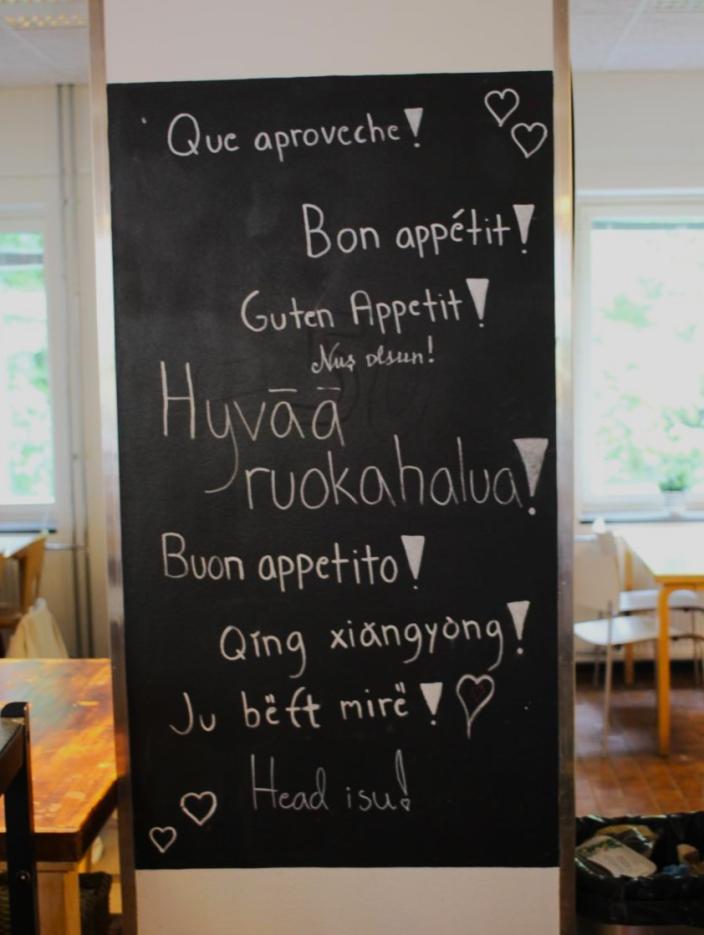 Que aproveche!
Bon appétit!
Guten Appetit!
Nuş olsun!
Hyvää
ruokahalua!
Buon appetito!
Qǐng xiǎngyòng!
Ju bëft mirë!
Head isu!